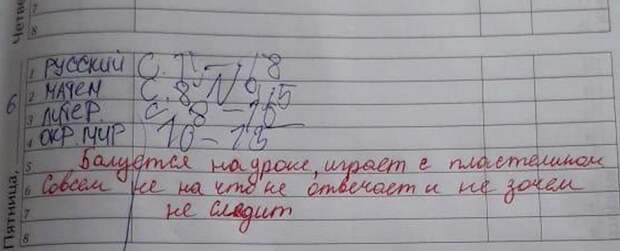 Четве
7
8
Пятница, 6
1 РУССКИЙ С.
2 МАТЕМ С.8 N
3 ЛИТЕР. С.8 – 16
4 ОКР. МИР 10 – 13
5 Балуется на уроке, играет с пластелином
6 Совсем не на что не отвечает и не зочем
7 не следит
8